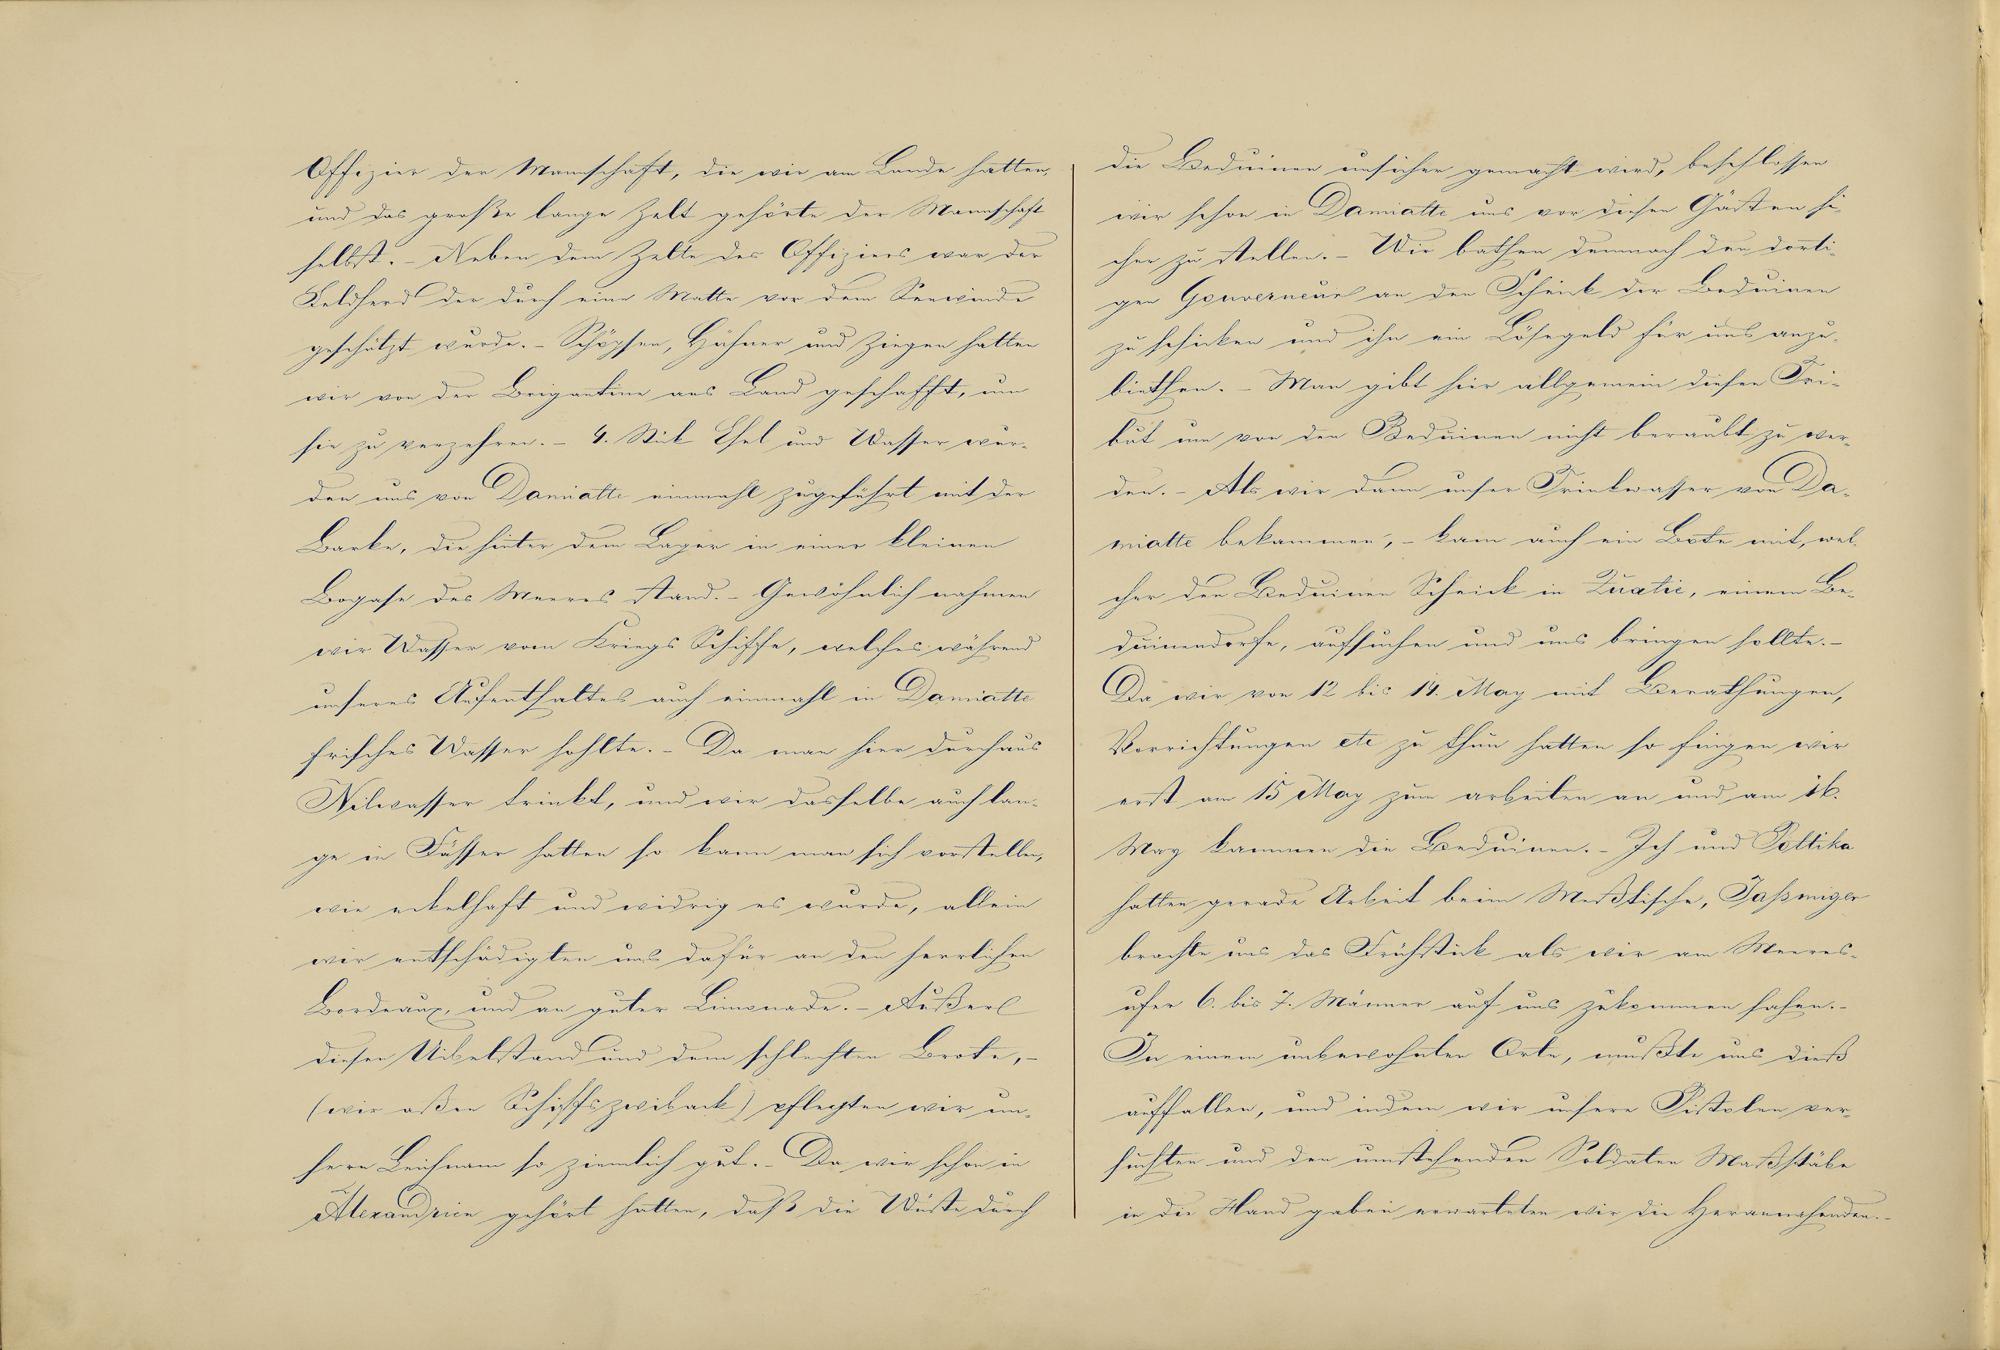 Offizier der Mannschaft, die wir am Lande hatten,
und das große lange Zelt gehörte der Mannschaft
selbst. – Neben dem Zelte des Offiziers war der
Feldherd der durch eine Matte vor dem Seewinde
geschützt wurde. – Schöpsen, Hühner und Ziegen hatten
wir von der Brigantine ans Land geschafft, um
sie zu verzehren. – 4. Stük Esel und Wasser wur-
den uns von Damiatte einmahl zugeführt mit der
Barke, die hinter dem Lager in einer kleinen
Bogase des Meeres stand. – Gewöhnlich nahmen
wir Wasser vom Kriegs Schiffe, welches während
unseres Aufenthaltes auch einmahl in Damiatte
frisches Wasser hohlte. – Da man hier durchaus
Nilwasser trinkt, und wir dasselbe auch lan-
ge in Fässer hatten so kann man sich vorstellen,
wie eckelhaft und widrig es wurde, allein
wir entschädigten uns dafür an den herrlichen
Bordeaux, und an guter Limonade. – Außer
diesen Uibelstand und dem schlechten Brote, –
(wir aßen Schiffszwiback) pflegten wir un-
sern Leichnam so ziemlich gut. – Da wir schon in
Alexandrien gehört hatten, daß die Wüste durch
die Beduinen unsicher gemacht wird, beschlossen
wir schon in Damiatte uns vor diesen Gästen si-
cher zu stellen. – Wir bathen demnach den dorti-
gen Gouverneur an den Scheick der Beduinen
zu schicken und ihn ein Lösegeld für uns anzu-
biethen. – Man gibt hier allgemein diesen Tri-
but um von den Beduinen nicht beraubt zu wer-
den. – Als wir dann unser Trinkwasser von Da-
miatte bekammen, – kam auch ein Bote mit, wel-
cher den Beduinen Scheick in Zuatie, einem Be-
duinendorfe, aufsuchen und uns bringen sollte. –
Da wir von 12 bis 14. May mit Berathungen,
Vorrichtungen etc zu thun hatten so fingen wir
erst am 15 May zum arbeiten an und am 16.
May kammen die Beduinen. – Ich und Poltika
hatten gerade Arbeit beim Meßtische, Jaßmiger
brachte uns das Frühstück als wir am Meeres-
ufer 6. bis 7. Männer auf uns zukommen sahen. –
In einem unbewohnten Orte, mußte uns dieß
auffallen, und indem wir unsere Pistolen ver-
suchten und den umstehenden Soldaten Maßstäbe
in die Hand gaben erwarteten wir die Herannahenden. –